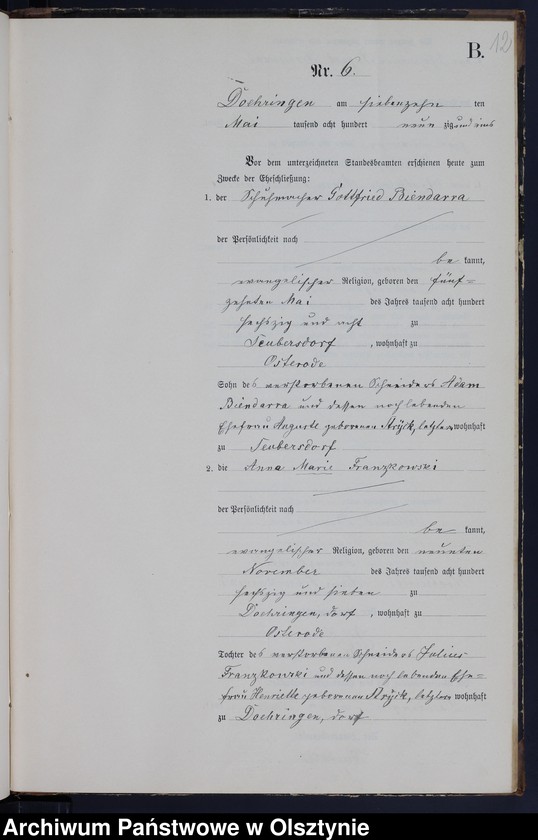 B.
12
Nr. 6.
Doehringen am siebenzehn ten
Mai tausend acht hundert neun zig und eins
Vor dem unterzeichneten Standesbeamten erschienen heute zum
Zwecke der Eheschließung:
1. der Schuhmacher Gottfried Biendarra
der Persönlichkeit nach
be kannt,
evangelischer Religion, geboren den fünf=
zehnten Mai des Jahres tausend acht hundert
sechszig und acht zu
Seubersdorf, wohnhaft zu
Osterode
Sohn des verstorbenen Schneiders Adam
Biendarra und dessen noch lebenden
Ehefrau Auguste geborenen Stryck, letztere wohnhaft
zu Seubersdorf
2. die Anna Marie Franzkowski
der Persönlichkeit nach
be kannt,
evangelischer Religion, geboren den neunten
November des Jahres tausend acht hundert
sechszig und sieben zu
Doehringen, dorf, wohnhaft zu
Osterode
Tochter des verstorbenen Schneiders Julius
Franzkowski und dessen noch lebenden Ehe=
frau Henriette geborenen Stryck, letztere wohnhaft
zu Doehringen, dorf
Archiwum Państwowe w Olsztynie